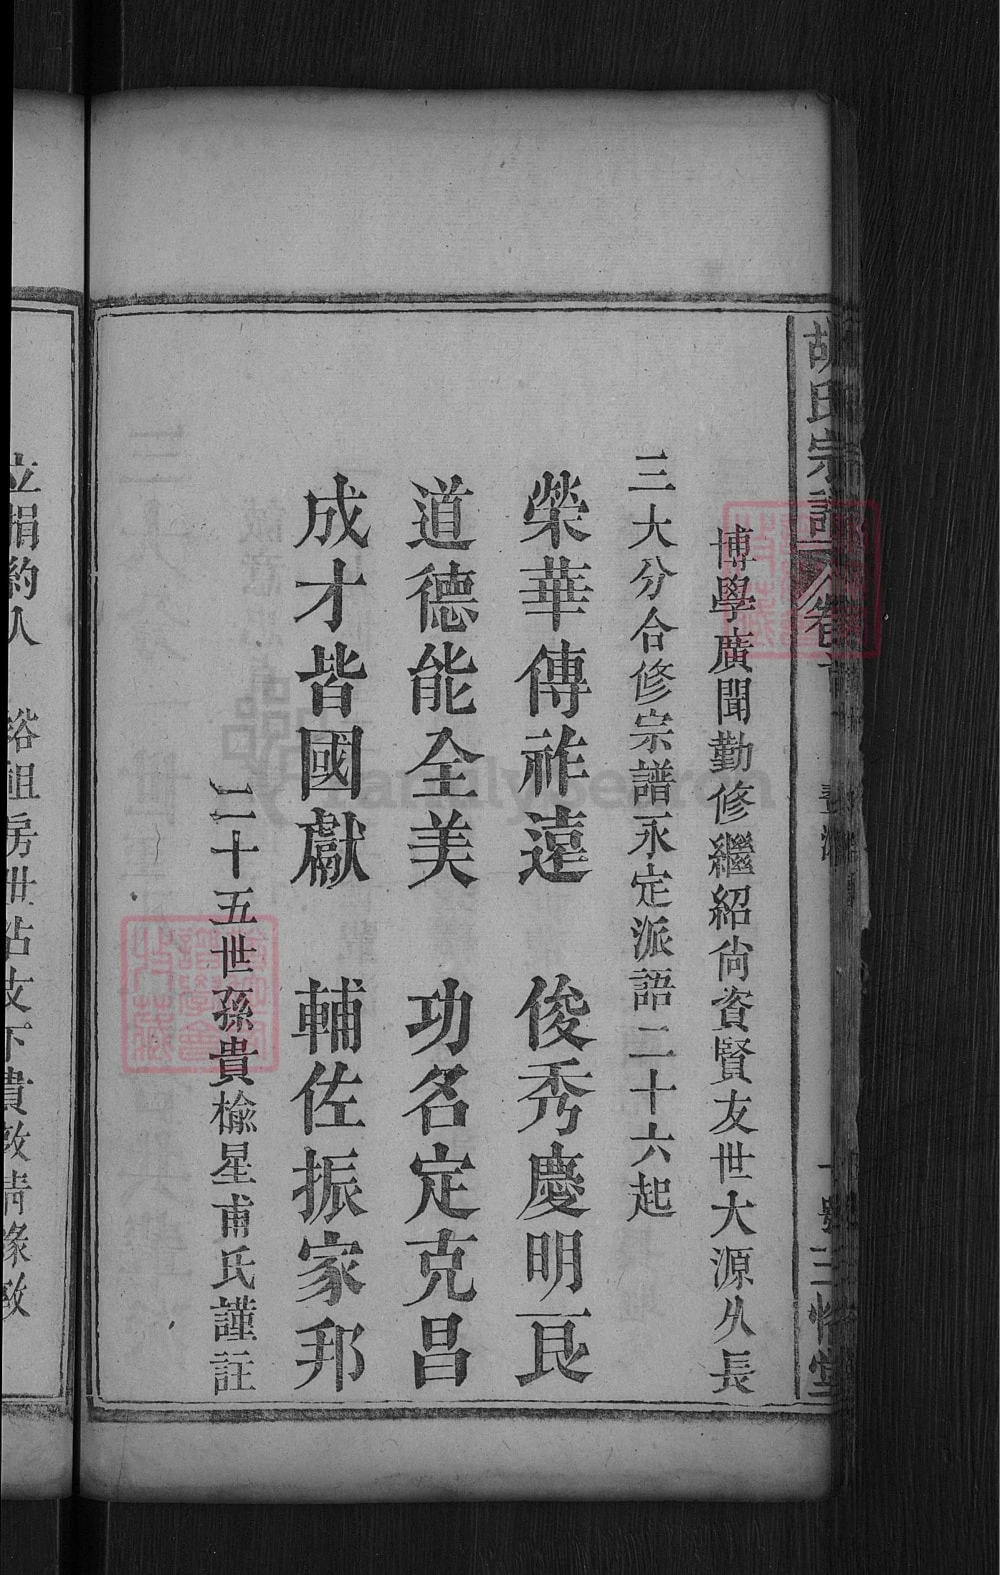 胡氏宗譜
博學廣聞勤修繼紹尚資賢友世大源久長
三大分合修宗譜永定派語二十六起
榮華傳祚遠 俊秀慶明良
道德能全美 功名定克昌
成才皆國獻 輔佐振家邦
二十五世孫貴榆星甫氏謹註
立捐約人 裕祖房世占支下貴敦
FamilySearch